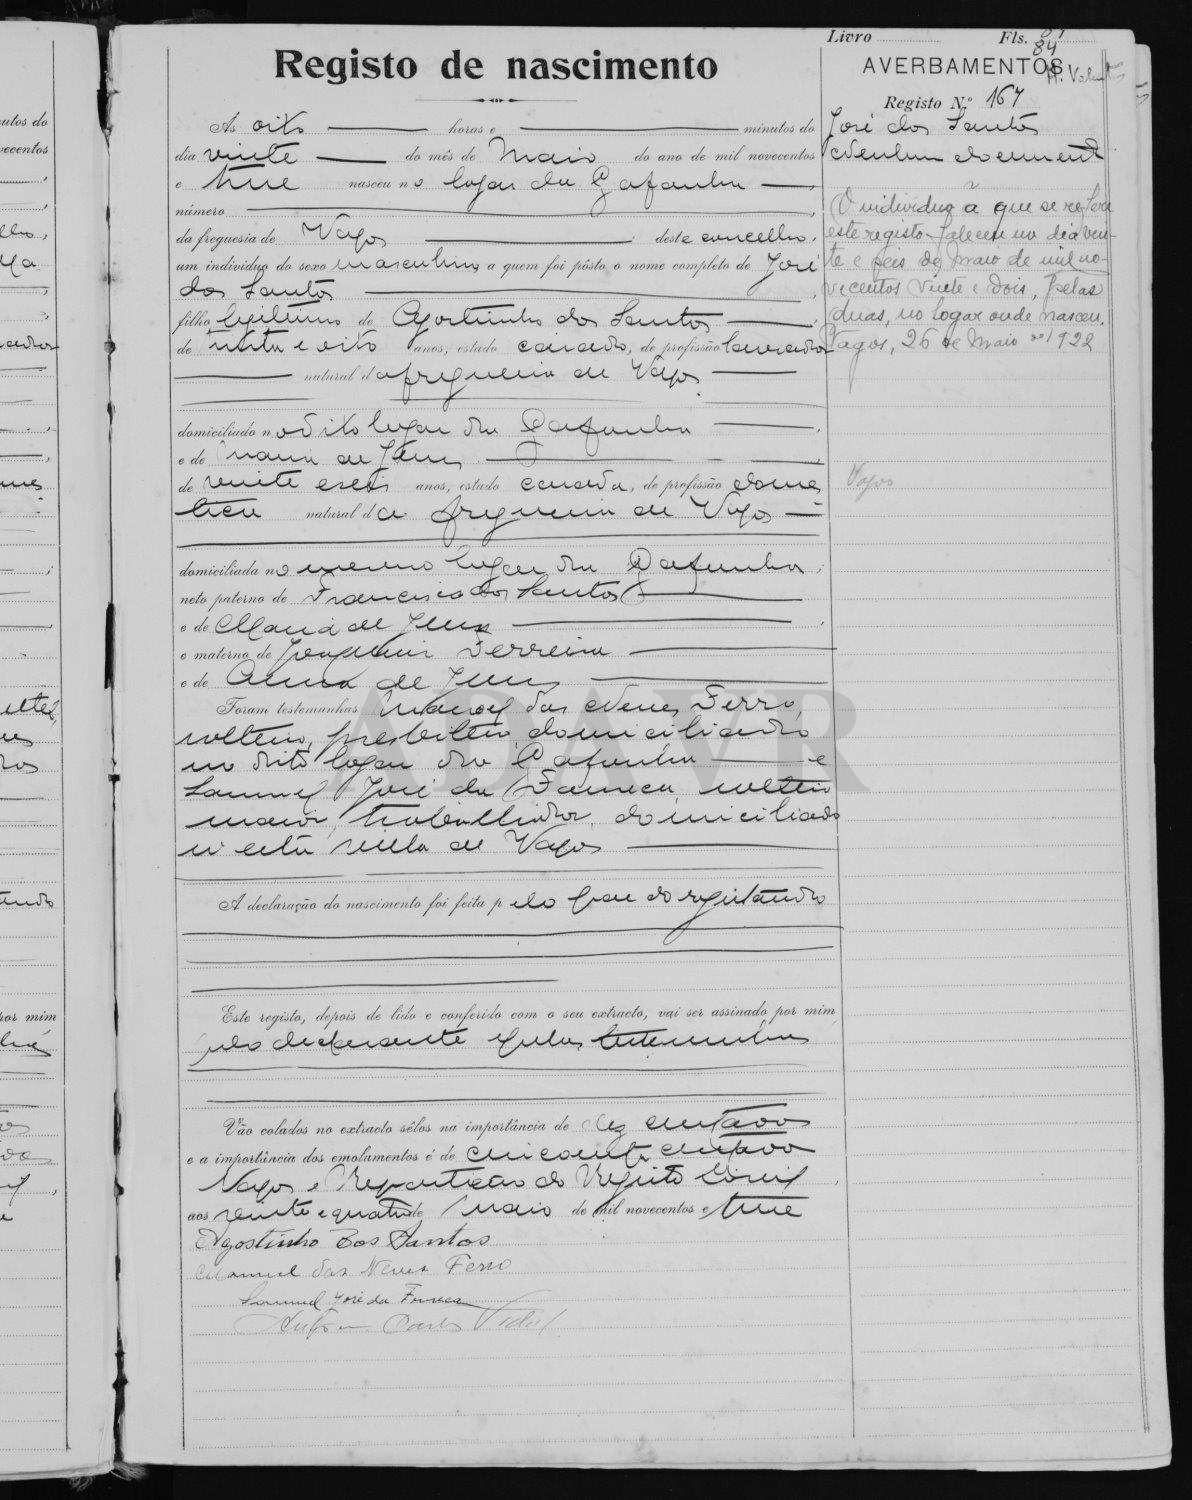 Livro Fls. 84
Registo de nascimento
AVERBAMENTOS
Registo N.º 167
José dos Santos
Nenhum document
Às oito horas e minutos do
dia vinte do mês de Maio do ano de mil novecentos
e treze nasceu no logar da Gafanha
número
da freguesia de Vagos deste concelho,
um indivíduo do sexo masculino a quem foi pôsto o nome completo de José
dos Santos
filho legitimo de Agostinho dos Santos
de trinta e oito anos, estado casado, de profissão lavrador
natural da freguesia de Vagos
domiciliado no dito logar da Gafanha
e de Maria de Jesus
de vinte e seis anos, estado casada, de profissão domes
tica natural da freguesia de Vagos
domiciliada no mesmo logar da Gafanha
neto paterno de Francisco dos Santos
e de Maria de Jesus
e materno de Joaquim Ferreira
e de Anna de Jesus
Foram testemunhas Manoel das Neves Ferro,
solteiro, presbitero, domiciliado
no dito logar da Gafanha e
Samuel José da Fonseca, solteiro
maior, trabalhador, domiciliado
n'esta villa de Vagos
A declaração do nascimento foi feita pelo pae do registando
Este registo, depois de lido e conferido com o seu extracto, vai ser assinado por mim
pelo declarante e pelas testemunhas
Vão colados no extracto sêlos na importância de dez centavos
e a importância dos emolumentos é de cincoenta centavos
Vagos e Repartição do Registo Civil
aos vinte e quatro de Maio de mil novecentos e treze
Agostinho dos Santos
Manuel das Neves Ferro
Samuel José da Fonseca
Antonio Carlos Vidal
O individuo a que se refere
este registo faleceu no dia vin-
te e seis de maio de mil no-
vecentos vinte e dois, pelas
duas, no logar onde nasceu.
Vagos, 26 de Maio de 1922
Vagos
ADAVR